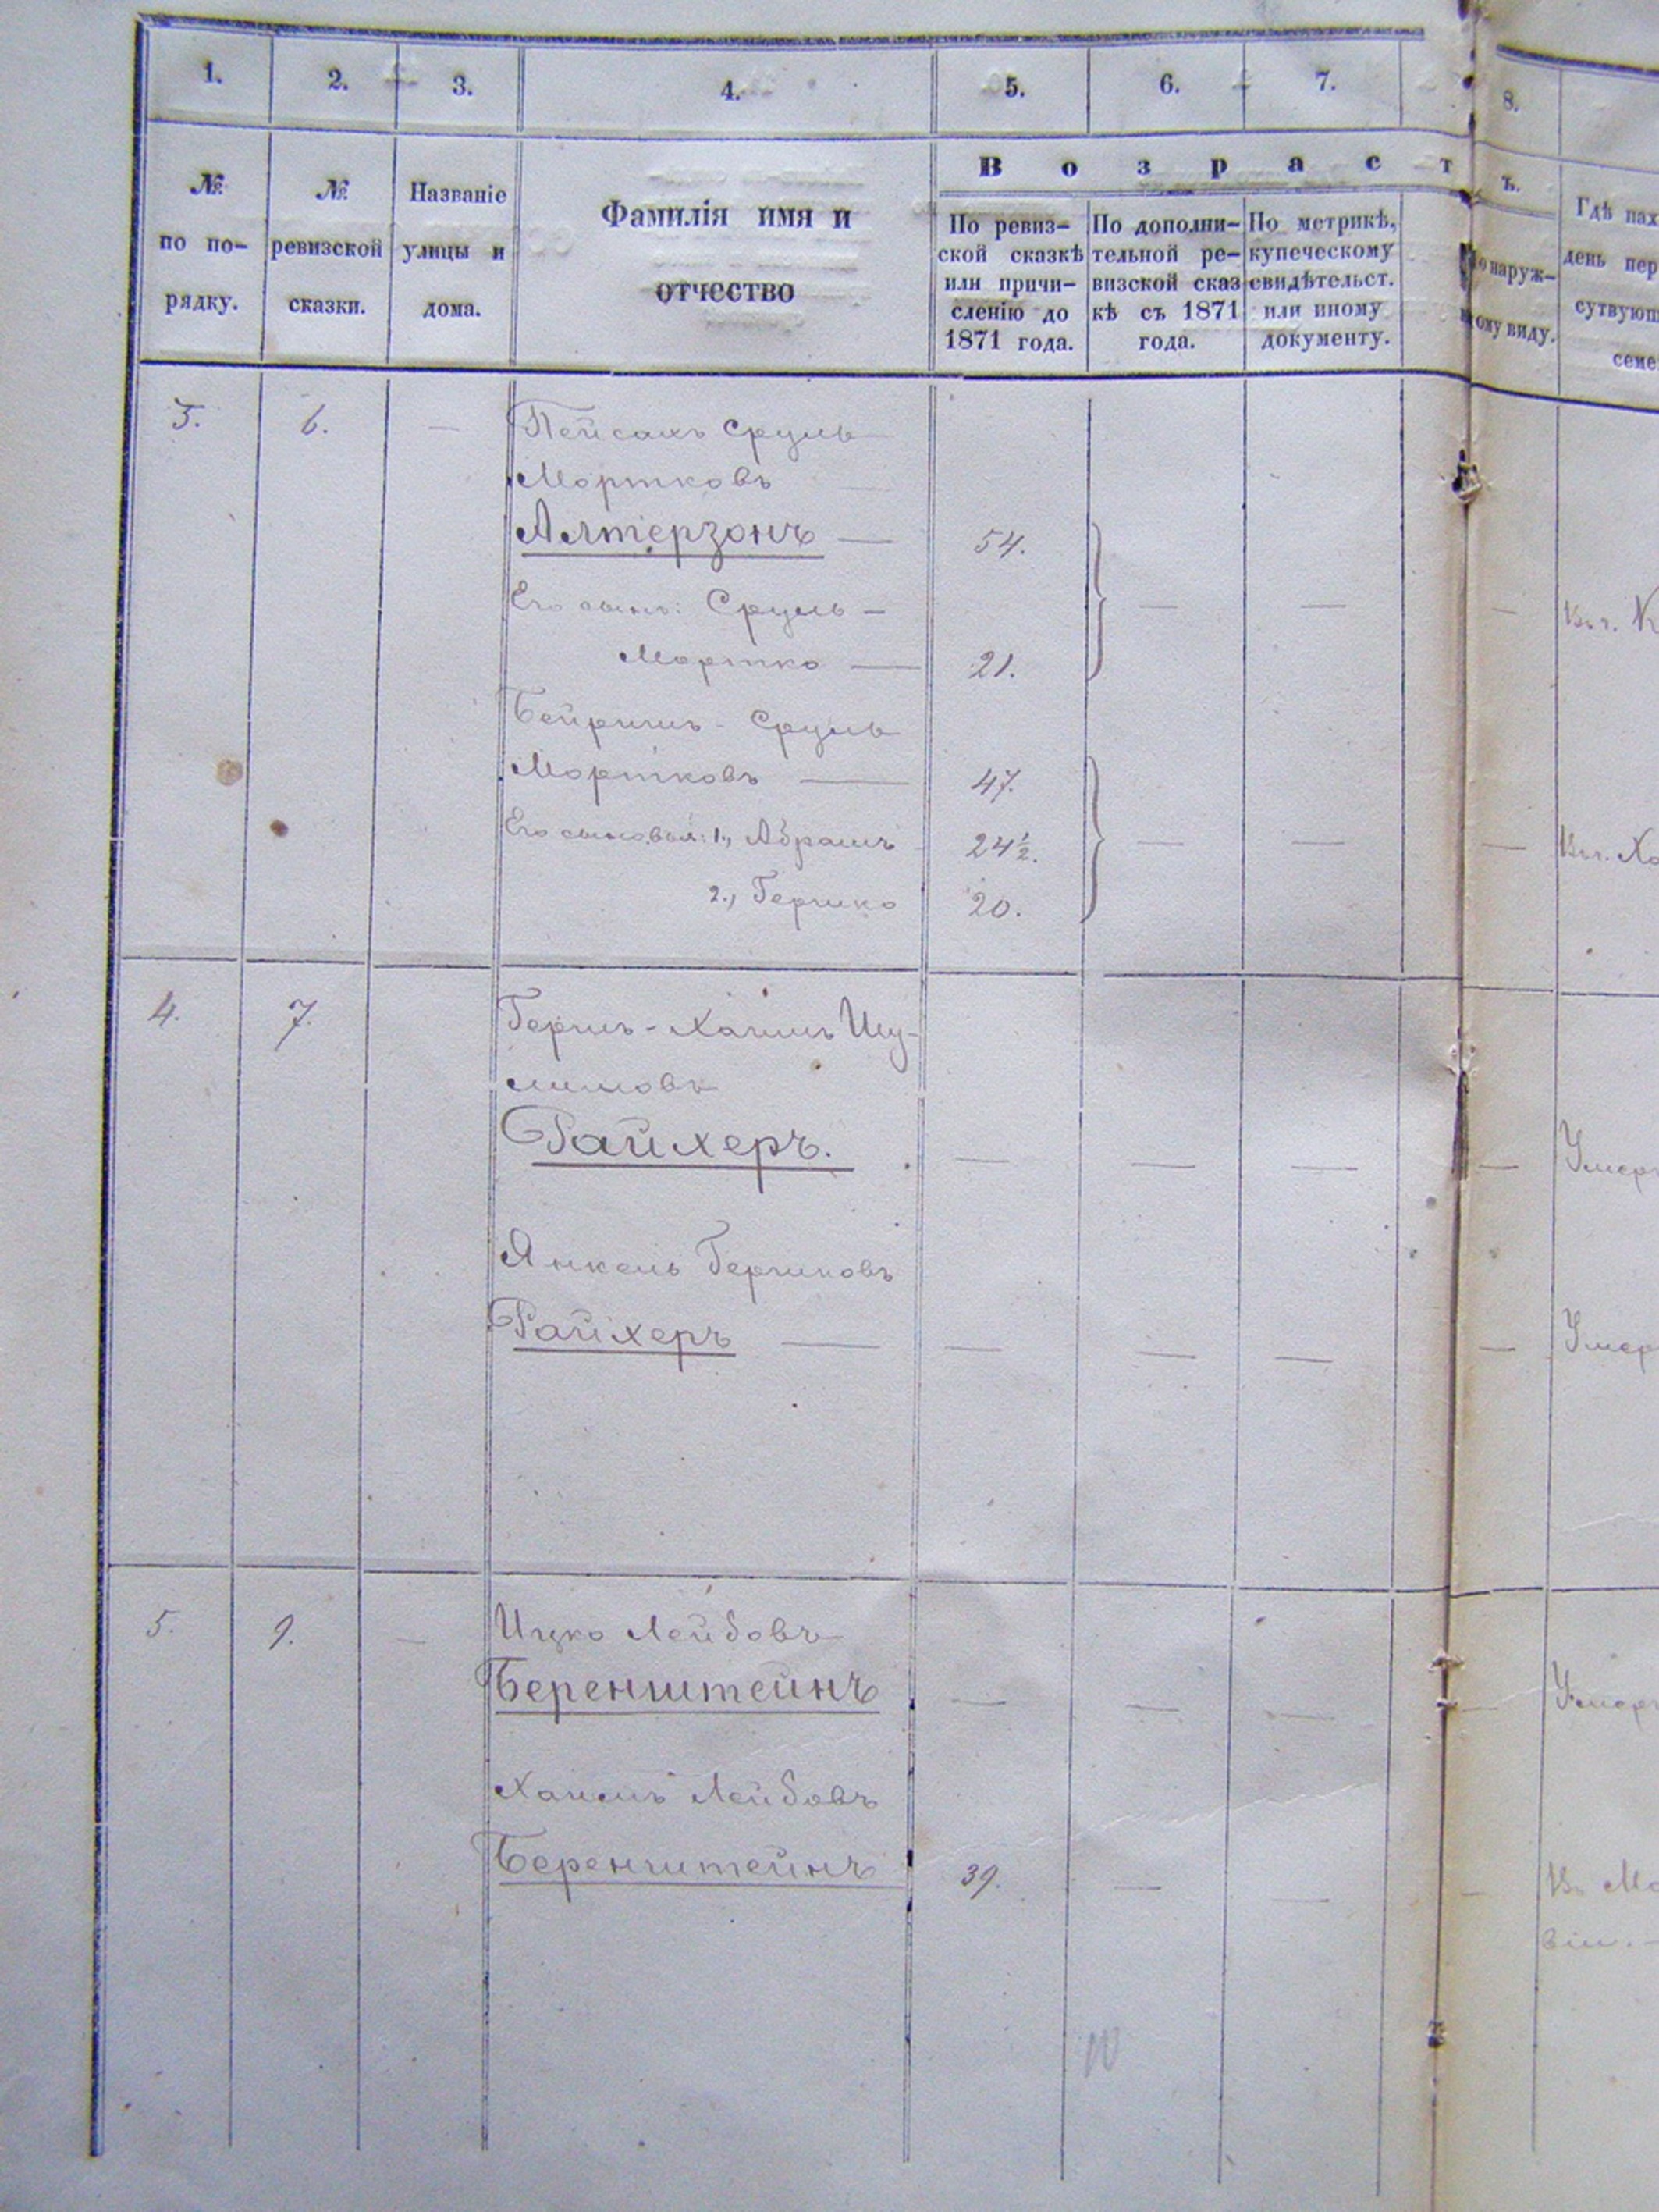 1. 2. 3. 4. 5. 6. 7. 8.
В о з р а с т ъ.
№ по по-
рядку.
№ ревизской
сказки.
Названіе
улицы и
дома.
Фамилія имя и
отчество
По ревиз-
ской сказкѣ
или причи-
сленію до
1871 года.
По дополни-
тельной ре-
визской сказ
кѣ съ 1871
года.
По метрикѣ,
купеческому
свидѣтельст.
или иному
документу.
наруж-
ому виду.
Гдѣ
день
семе
3. 6. — Пейсахъ Сруль
Мортковъ —
Алтерзонъ — 54.
Его сынъ: Сруль —
Мортко — 21.
Бейришъ - Сруль
Мортковъ — 47.
Его сыновья: 1., Абрамъ 24½.
2., Гершко 20.
4. 7. Гершъ - Хаимъ Шу-
лимовъ
Райхеръ. — — — —
Янкель Гершковъ
Райхеръ — — — — —
5. 9. — Ицко Лейбовъ
Беренштейнъ — — — —
Хаимъ Лейбовъ
Беренштейнъ 39. — — —